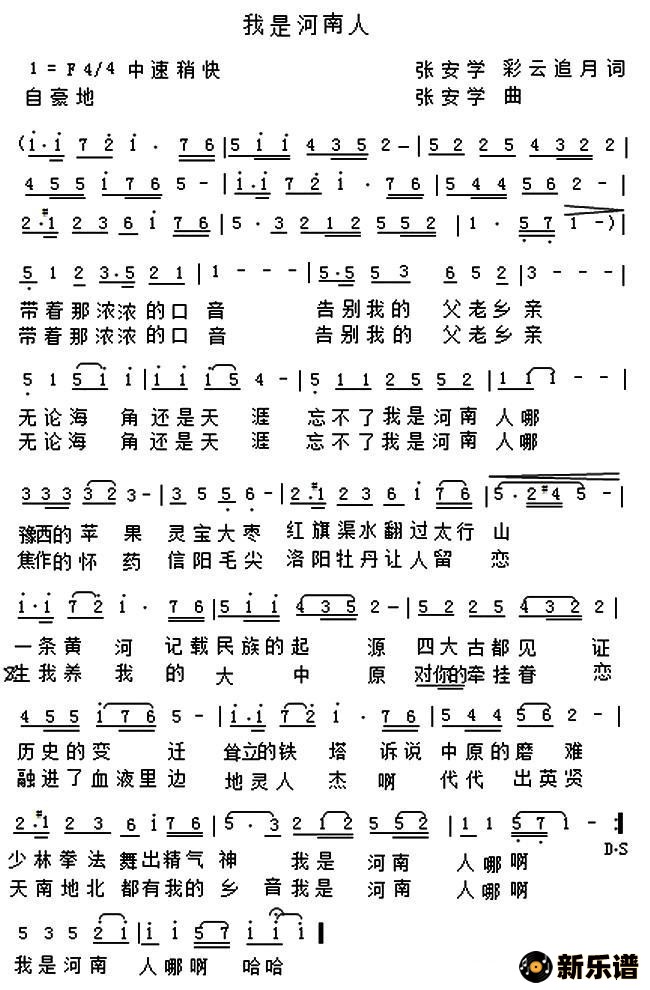 我是河南人
1 = F 4/4 中速稍快 张安学 彩云追月词
自豪地 张安学 曲
(i·i 7 2 i · 76 | 5 i i 4 3 5 2 – | 5 2 2 5 4 3 2 2 |
4 5 5 i 7 6 5 - | i·i 7 2 i · 76 | 5 4 4 5 6 2 - |
2·#1 2 3 6 i 7 6 | 5 · 3 2 1 2 5 5 2 | 1 · 5 7 1 -) |
5 1 2 3·5 2 1 | 1 - - - | 5·5 5 3 6 5 2 | 3 - - - |
带着那浓浓的口音 告别我的 父老乡亲
带着那浓浓的口音 告别我的 父老乡亲
5 1 5 i i | i i i 5 4 - | 5 1 1 2 5 5 2 | 1 1 1 - - |
无论海 角还是天 涯 忘不了我是河南 人哪
无论海 角还是天 涯 忘不了我是河南 人哪
3 3 3 3 2 3 - | 3 5 5 6 - | 2·#1 2 3 6 i 7 6 | 5 · 2 #4 5 - |
豫西的 苹 果 灵宝大枣 红旗渠水翻过太行山
焦作的 怀 药 信阳毛尖 洛阳牡丹让人留 恋
i·i 7 2 i · 7 6 | 5 i i 4 3 5 2 - | 5 2 2 5 4 3 2 2 |
一条黄 河 记载民族的起 源 四大古都见 证
生我养 我 的 大 中 原 对你的牵挂眷 恋
4 5 5 i 7 6 5 - | i·i 7 2 i · 7 6 | 5 4 4 5 6 2 - |
历史的变 迁 耸立的铁 塔 诉说 中原的磨 难
融进了血液里边 地灵人 杰 啊 代代 出英贤
2·#1 2 3 6 i 7 6 | 5 · 3 2 1 2 5 5 2 | 1 1 5 7 1 - :|
D·S
少林拳法 舞出精气 神 我 是 河南 人 哪啊
天南地北 都有我的 乡 音我是 河南 人 哪啊
5 3 5 2 i | i i 5 7 i i i ‖
我是河南 人 哪啊 哈哈
新乐谱